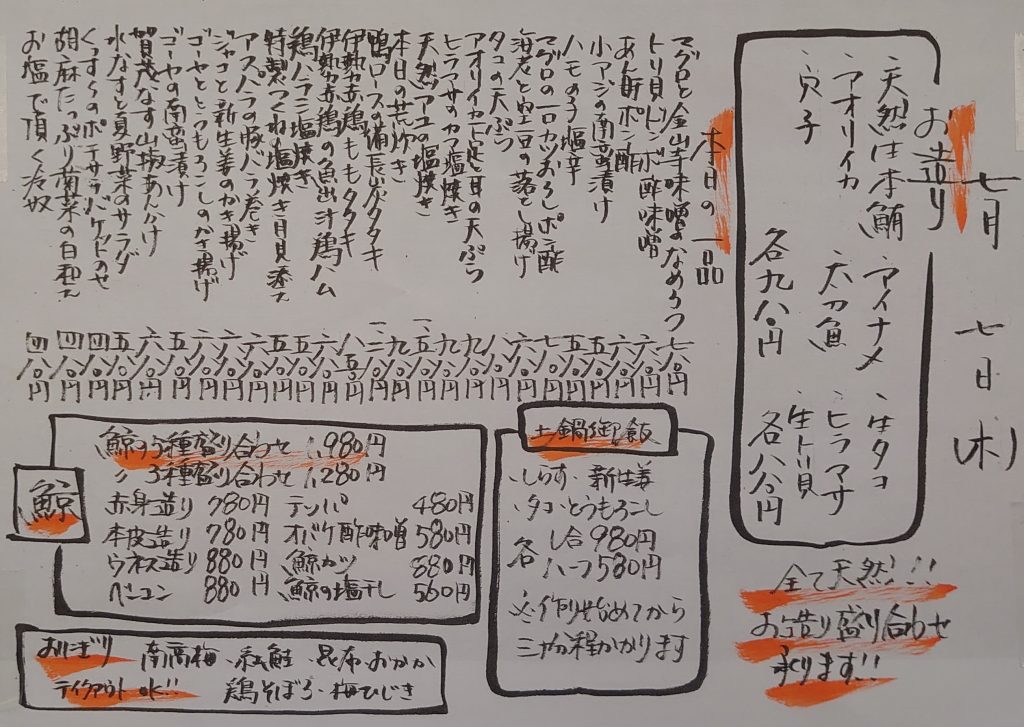 七月 七日(木)
お造り
天然生本鮪 アイナメ 生タコ
アオリイカ 太刀魚 ヒラマサ
穴子 生トリ貝
各九八〇円 各八八〇円
全て天然!!
お造り盛り合わせ
承ります!!
本日の一品
マグロと金山寺味噌のなめろう 七八〇円
トリ貝トンボ酢味噌 六八〇円
あん肝ポン酢 六八〇円
小アジの南蛮漬け 五八〇円
ハモの子塩辛 五八〇円
マグロの一口カツおろしポン酢 七八〇円
海老と空豆の落とし揚げ 六八〇円
タコの天ぷら 六八〇円
アオリイカ下足と耳の天ぷら 八八〇円
ヒラマサのカマ塩焼き 九八〇円
天然アユの塩焼き 九八〇円
本日の荒炊き
鴨ロースの備長炭タタキ
伊勢赤鶏ももタタキ
伊勢赤鶏の魚出汁鶏ハム
鶏ハラミ塩焼き
特製つくね塩焼き目貝添え
アスパラの豚バラ巻き
ジャコと新生姜のかき揚げ
ゴーヤととうもろこしのかき揚げ
ゴーヤの南蛮漬け
賀茂なす山椒あんかけ
水なすと夏野菜のサラダ
くっすーのポテサラバケットのせ 四八〇円
胡麻たっぷり青菜の白和え 四八〇円
お塩で頂く冷奴 四八〇円
土鍋御飯
・しらす・新生姜
・タコ・とうもろこし
各 一合980円
ハーフ580円
※作り始めてから
三十分程かかります
鯨
鯨の5種盛り合わせ 1,980円
〃 3種盛り合わせ 1,280円
赤身造り 780円 テッパ 480円
本皮造り 780円 オバケ酢味噌 580円
ウネス造り 880円 鯨カツ 880円
ベーコン 880円 鯨の塩干し 560円
おにぎり 南高梅・紅鮭・昆布・おかか
テイクアウトOK!! 鶏そぼろ・梅ひじき